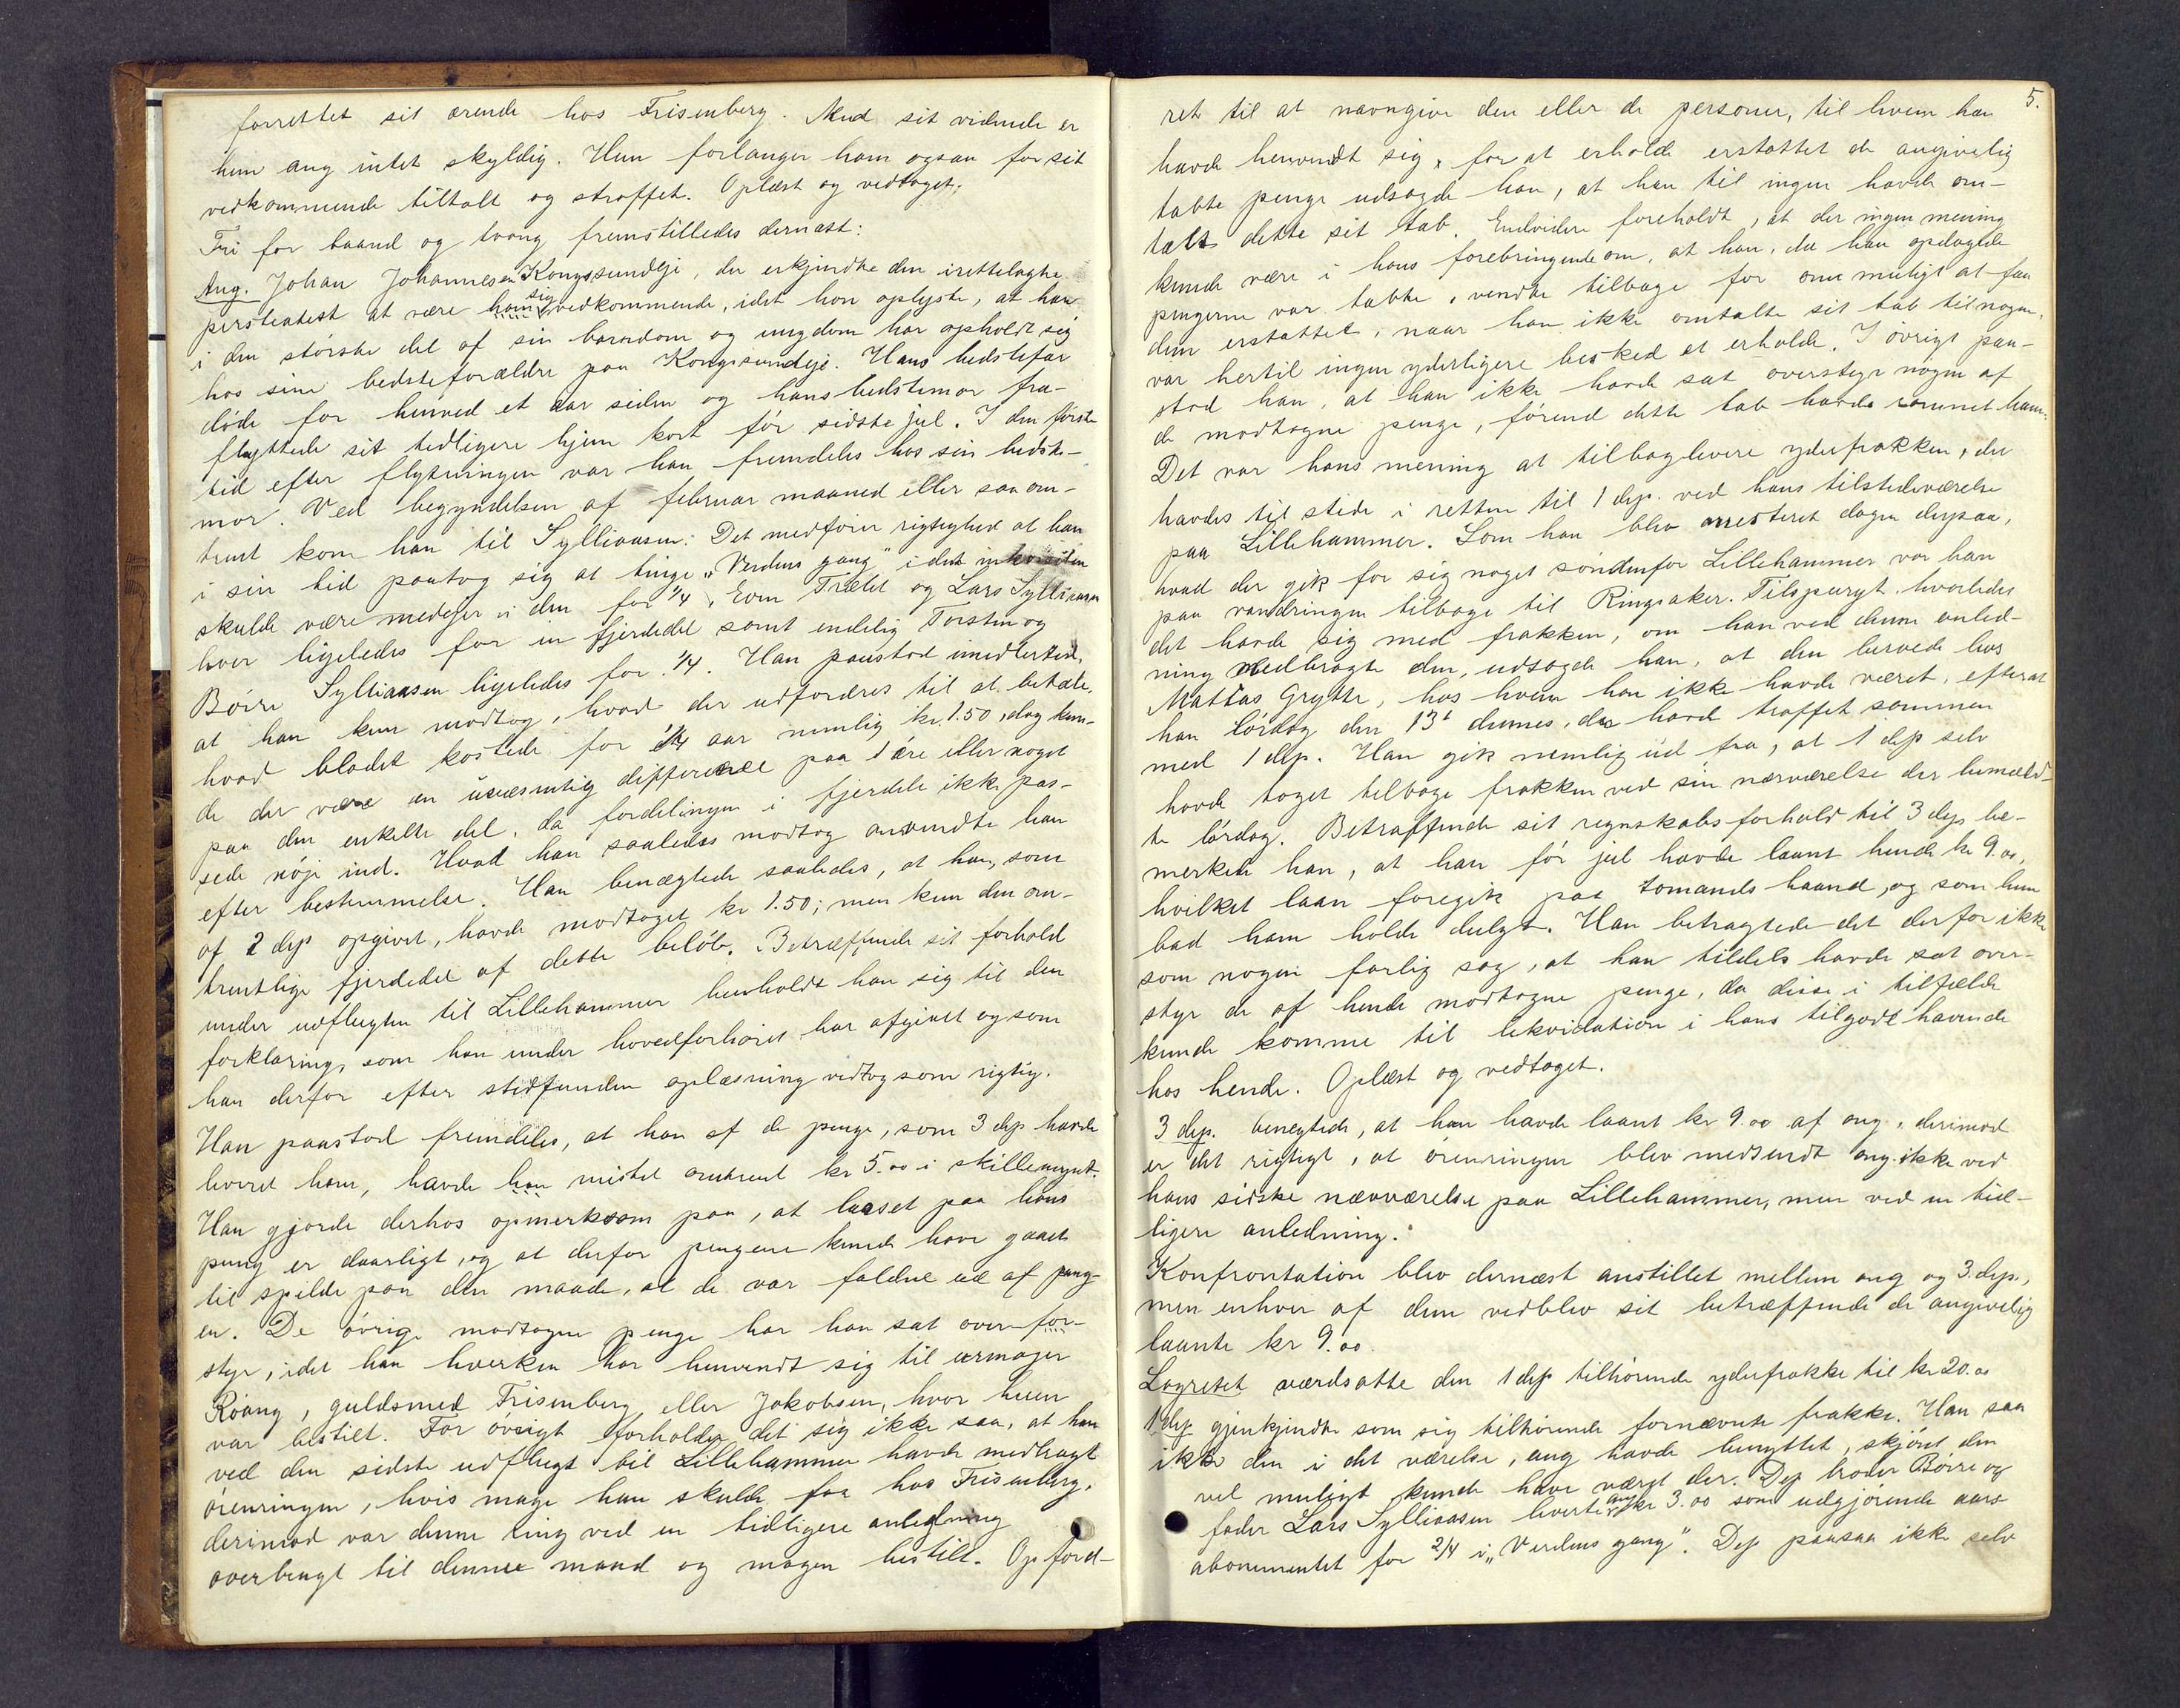 forrettet sit ærende hos Frisenberg. Med sit vidende er
hun ang intet skyldig. Hun forlanger ham ogsaa for sit
vedkommende tiltalt og straffet. Oplæst og vedtaget.
Fri for baand og tvang fremstilledes dernæst:
Ang. Johan Johannesen Kongssundeje, der erkjendte den irettelagte
præsteattest at være ham sig vedkommende, idet han oplyste, at han
i den største del af sin barndom og ungdom har opholdt sig
hos sine bedsteforældre paa Kongssundeje. Hans bedstefar
døde for henved et aar siden og hans bedstemor fra-
flyttede sit tidligere hjem kort før sidste jul. I den første
tid efter flytningen var han fremdeles hos sin bedste-
mor. Ved begyndelsen af februar maaned eller saa om-
trent kom han til Sylliaasen. Det medfører rigtighed at han
i sin tid paatog sig at tinge „Verdens gang" i det
skulde være medejer i den for 1/4, Even Trætet og Lars Sylliaasen
hver ligeledes for en fjerdedel samt endelig Torstin og
Børre Sylliaasen ligeledes for 1/4. Han paastod imidlertid,
at han kun modtog, hvad der udfordres til at betale,
hvad bladet kostede for 1/4 aar nemlig kr. 1.50, dog kun-
de der være en uvæsentlig differense paa 1 øre eller noget
paa den enkelte del, da fordelingen i fjerdele ikke pas-
sede nøje ind. Hvad han saaledes modtog anvendte han
efter bestemmelse. Han benægtede saaledes, at han, som
af 2 dep opgivet, havde modtaget kr 1.50; men kun den om-
trentlige fjerdedel af dette beløb. Betræffende sit forhold
under udflugten til Lillehammer henholdt han sig til den
forklaring, som han under hovedforhøret har afgivet og som
han derfor efter stedfunden oplæsning vedtog som rigtig.
Han paastod fremdeles, at han af de penge, som 3 dep havde
leveret ham, havde han mistet omtrent kr 5.00 i skillemynt.
Han gjorde derhos opmerksom paa, at laaset paa hans
pung er daarligt, og at derfor pengene kunde have gaaet
til spilde paa den maade, at de var faldne ud af pung-
en. De øvrige modtagne penge har han sat over-for-
styr, idet han hverken har henvendt sig til urmager
Roang, guldsmed Frisenberg eller Jakobsen, hvor huen
var bestilt. For øvrigt forholder det sig ikke saa, at han
ved den sidste udflugt til Lillehammer havde medbragt
ørenringen, hvis mage han skulde faa hos Frisenberg,
derimod var denne ring ved en tidligere anledning
overbragt til denne mand og magen bestilt. Opford-
5.
ret til at navngive den eller de personer, til hvem han
havde henvendt sig, for at erholde erstattet de angivelig
tabte penge udsagde han, at han til ingen havde om-
talt dette sit tab. Endvidere foreholdt, at der ingen mening
kunde være i hans forebringende om, at han, da han opdagede
pengerne var tabte, vendte tilbage for om muligt at faa
dem erstattet, naar han ikke omtalte sit tab til nogen,
var hertil ingen yderligere besked at erholde. I øvrigt paa-
stod han, at han ikke havde sat overstyr nogen af
de modtagne penge, førend dette tab havde rammet ham.
Det var hans mening at tilbagelevere yderfrakken, der
havdes til stede i retten til 1 dep. ved hans tilstedeværelse
paa Lillehammer. Som han blev arresteret dagen derpaa,
hvad der gik for sig noget søndenfor Lillehammer var han
paa vandringen tilbage til Ringsaker. Tilspurgt hvorledes
det havde sig med frakken, om han ved denne anled-
ning medbragte den, udsagde han, at den beroede hos
Mattas Grytte, hos hvem han ikke havde været, efterat
han lørdag den 13de dennes, der havde truffet sammen
med 1 dep. Han gik nemlig ud fra, at 1 dep selv
havde taget tilbage frakken ved sin nærværelse der bemeld-
te lørdag. Betræffende sit regnskabsforhold til 3 dep be-
merkede han, at han før jul havde laant hende kr 9.00,
hvilket laan foregik paa tomands haand, og som hun
bad ham holde dulgt. Han betragtede det derfor ikke
som nogen farlig sag, at han tildels havde sat over-
styr de af hende modtagne penge, da disse i tilfælde
kunde komme til likvidation i hans tilgodehavende
hos hende. Oplæst og vedtaget.
3 dep. benegtede, at hun havde laant kr 9.00 af ang, derimod
er det rigtigt, at ørenringen blev medsendt ang. ikke ved
hans sidste nærværelse paa Lillehammer, men ved en tid-
ligere anledning.
Konfrontation blev dernæst anstillet mellem ang og 3. dep.,
men enhver af dem vedblev sit betræffende de angivelig
laante kr 9.00.
Lagretet værdsatte den 1 dep tilhørende yderfrakke til kr 20.00
1 dep gjenkjendte som sig tilhørende fornævnte frakke. Han saa
ikke den i det værelse, ang havde benyttet, skjønt den
vel muligt kunde have været der. Dep broder Børre og
fader Lars Sylliaasen leverte ang kr 3.00 som udgjørende aars
abonnementet for 2/4 i „Verdens gang". Dep paasaa ikke selv